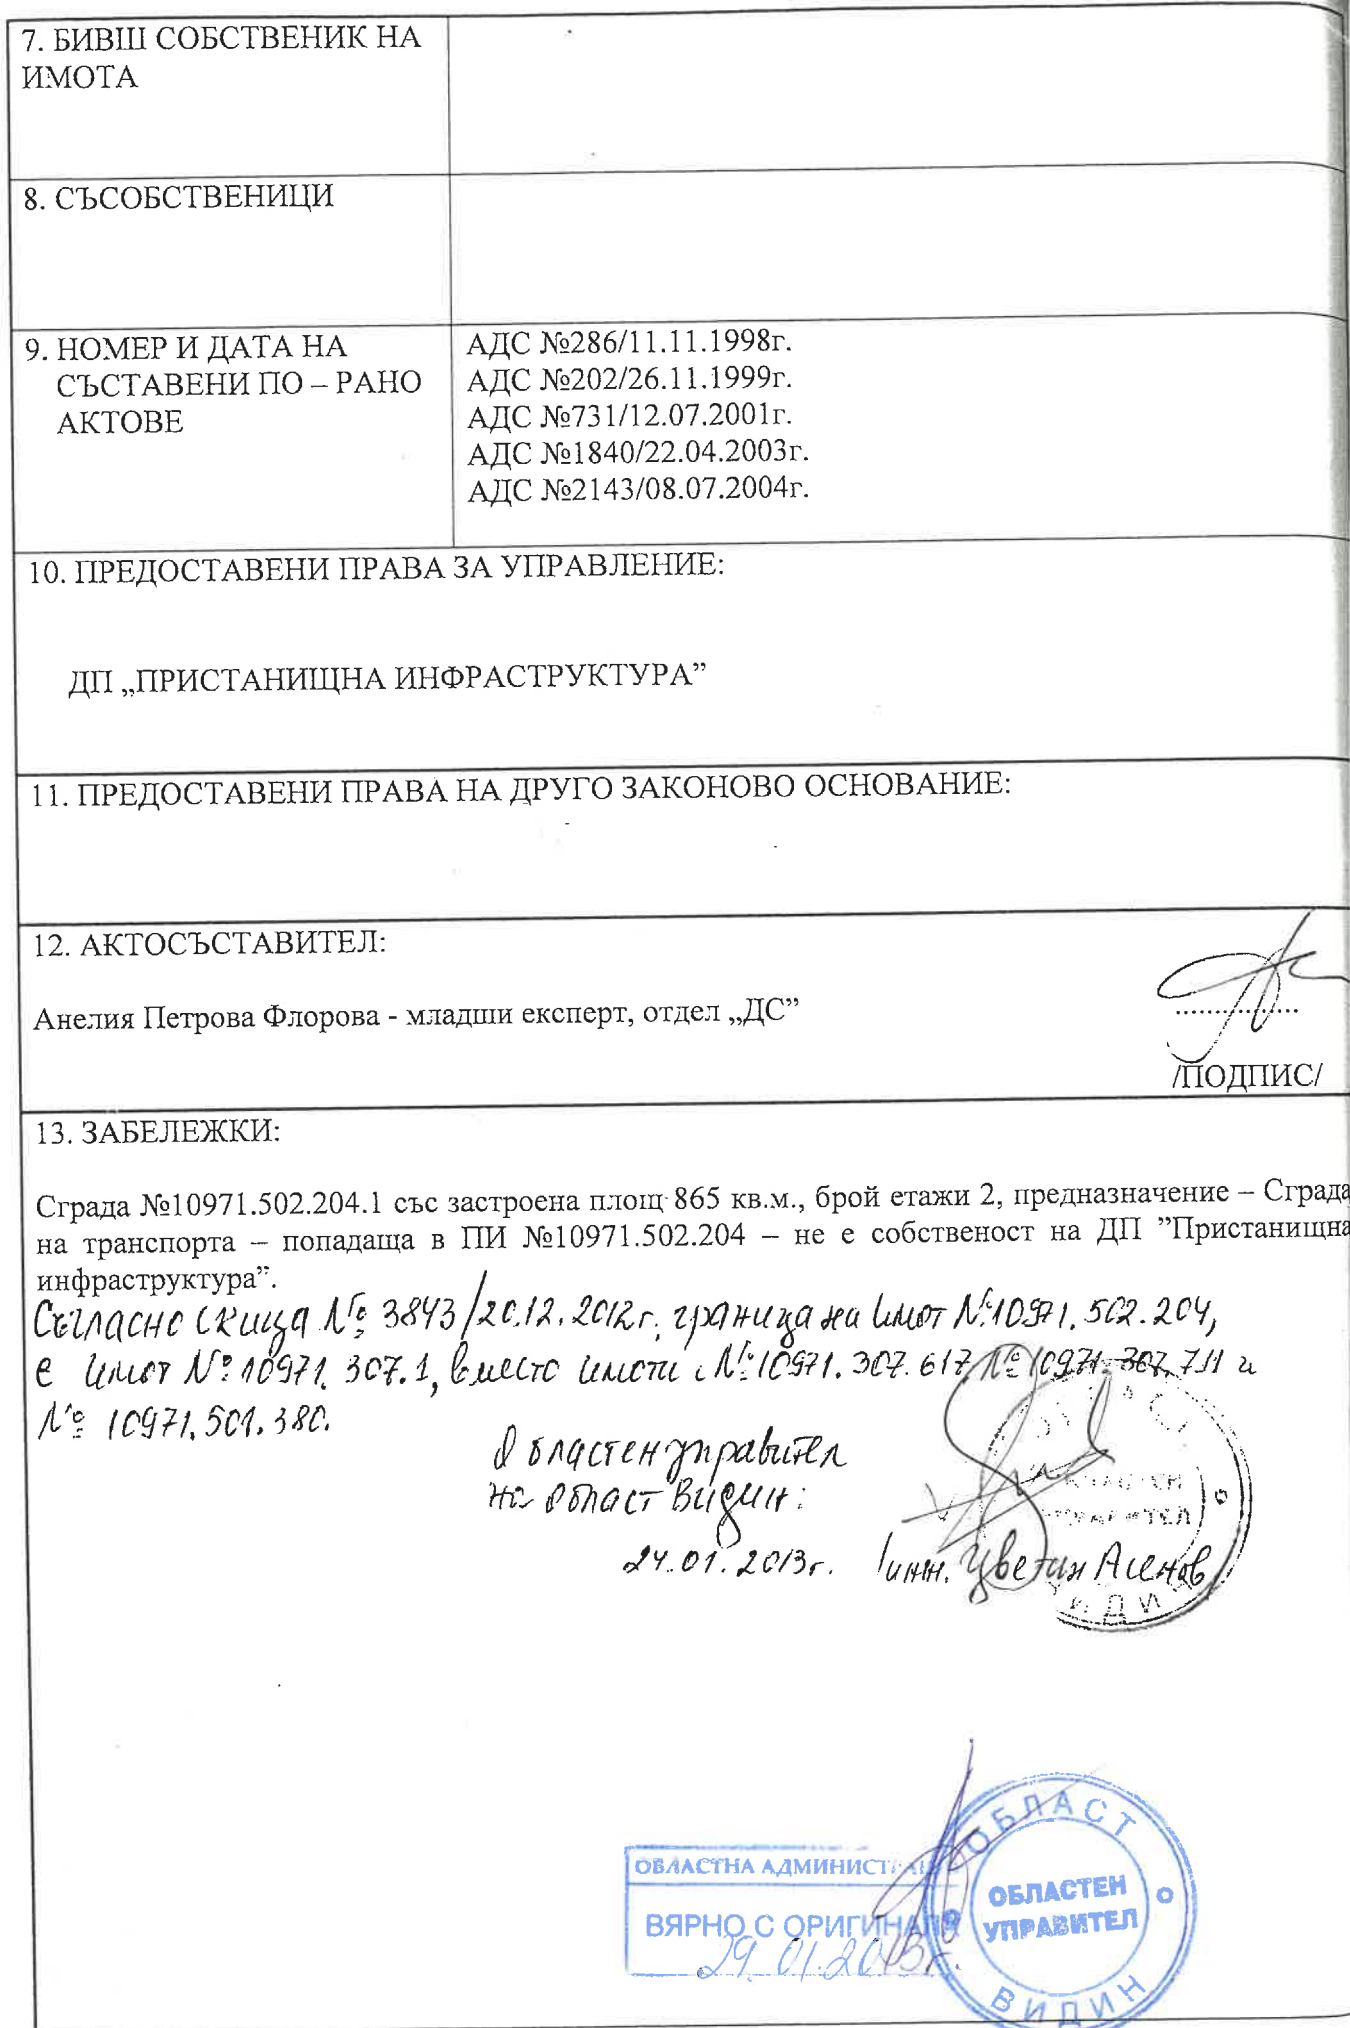 7. БИВШ СОБСТВЕНИК НА
ИМОТА
8. СЪСОБСТВЕНИЦИ
9. НОМЕР И ДАТА НА
СЪСТАВЕНИ ПО – РАНО
АКТОВЕ
АДС №286/11.11.1998г.
АДС №202/26.11.1999г.
АДС №731/12.07.2001г.
АДС №1840/22.04.2003г.
АДС №2143/08.07.2004г.
10. ПРЕДОСТАВЕНИ ПРАВА ЗА УПРАВЛЕНИЕ:
ДП „ПРИСТАНИЩНА ИНФРАСТРУКТУРА”
11. ПРЕДОСТАВЕНИ ПРАВА НА ДРУГО ЗАКОНОВО ОСНОВАНИЕ:
12. АКТОСЪСТАВИТЕЛ:
Анелия Петрова Флорова - младши експерт, отдел „ДС”
...............
/ПОДПИС/
13. ЗАБЕЛЕЖКИ:
Сграда №10971.502.204.1 със застроена площ 865 кв.м., брой етажи 2, предназначение – Сграда
на транспорта – попадаща в ПИ №10971.502.204 – не е собственост на ДП ”Пристанищна
инфраструктура”.
Съгласно скица № 3843/20.12.2012г. граница на имот №10971.502.204,
е имот № 10971.307.1, вместо имоти №10971.307.617, №10971.307.711 и
№ 10971.501.380.
Областен управител
на област Видин:
24.01.2013г. /инж. Цветан Асенов/
ОБЛАСТЕН
УПРАВИТЕЛ
ВИДИН
ОБЛАСТНА
ВЯРНО С ОРИГИНАЛА
29.01.2013г.
ОБЛАСТ
ОБЛАСТЕН
УПРАВИТЕЛ
ВИДИН